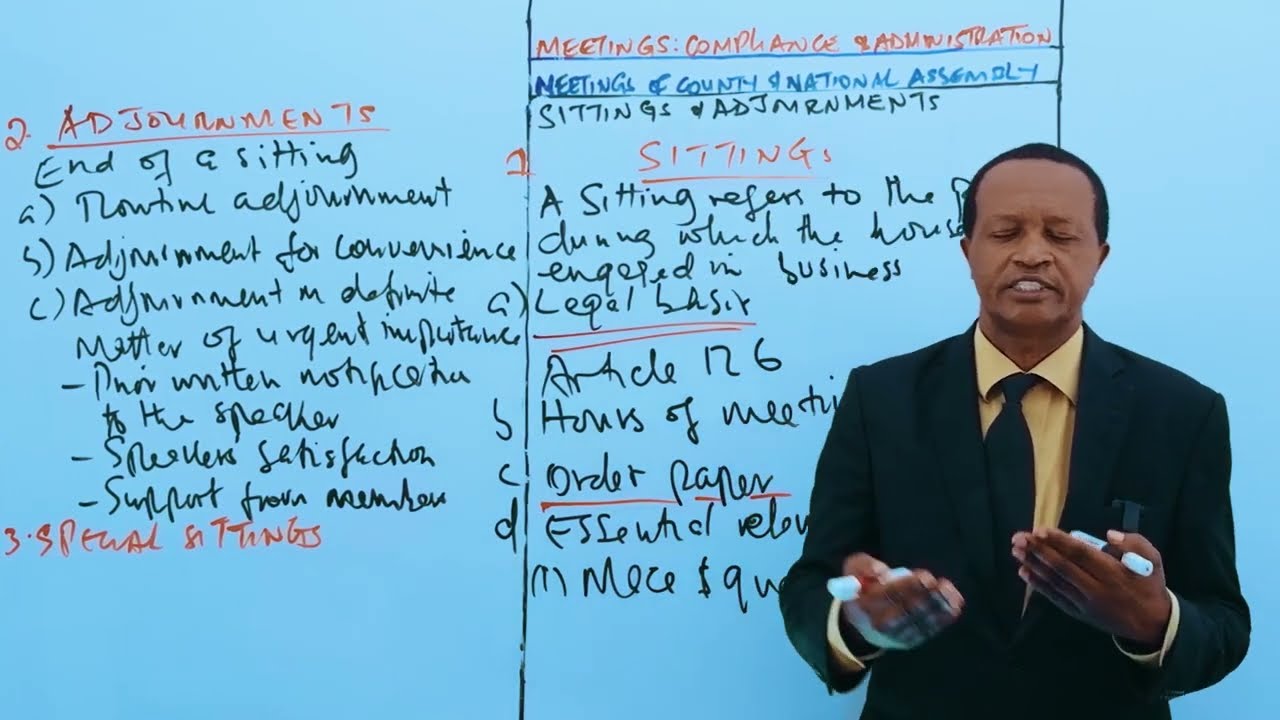 MEETINGS: COMPLIANCE & ADMINISTRATION
MEETINGS OF COUNTY & NATIONAL ASSEMBLY
SITTINGS & ADJOURNMENTS
1 SITTINGS
A Sitting refers to the
during which the house
engaged in business
a) Legal basis
Article 126
b Hours of meeti
c Order paper
d Essential
(1) Mace $ qu
2. ADJOURNMENTS
End of a sitting
a) Routine adjournment
b) Adjournment for convenience
c) Adjournment in definite
Matter of urgent importance
- Prior written notification
to the speaker
- Speakers satisfaction
- Support from members
3. SPECIAL SITTINGS